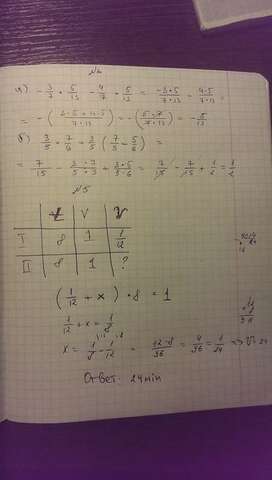 а) - 3/7 · 5/13 - 4/7 · 5/13 = -3·5/7·13 - 4·5/7·13 =
= - (3·5+4·5/7·13) = - (5·7/7·13) = - 5/13
б) 3/5 · 7/9 - 3/5 (7/3 - 5/6) =
= 7/15 - 3·7/5·3 + 3·5/5·6 = 7/15 - 7/15 + 1/2 = 1/2
№5
t V V
I 8 1 1/12
II 8 1 ?
(1/12 + x) · 8 = 1
1/12 + x = 1/8
x = 1/8 - 1/12 = 12-8/96 = 4/96 = 1/24 =>
Ответ: 24 min